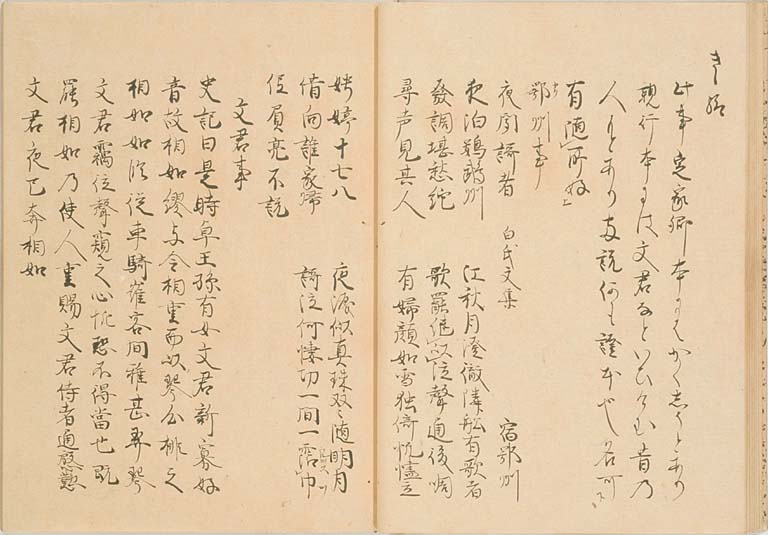 此事定家卿本にはかくしるしとあり
親行本には文君なといひけむ昔の
人もとあり両説何も證本也
有随所好
鄂州事
夜聞謌者 白氏文集 宿鄂州
夜泊鸚鵡州 江秋月澄徹隣舩有歌者
發調堪愁絶 歌罷継以泣聲通復咽
尋声見其人 有婦顔如雪独倚帆檣立
娉婷十七八 夜涙似真珠双々随明月
借向誰家婦 謌泣何悽切一問一霑巾
低眉竟不説
文君事
史記曰是時卓王孫有女文君新寡好
音故相如繆与令相重而以琴心挑之
相如如臨従車騎雍容間雅甚弄琴
文君竊 窺之心悦恐不得當也既
罷相如乃使人重賜文君侍者通殷懃
文君夜亡奔相如